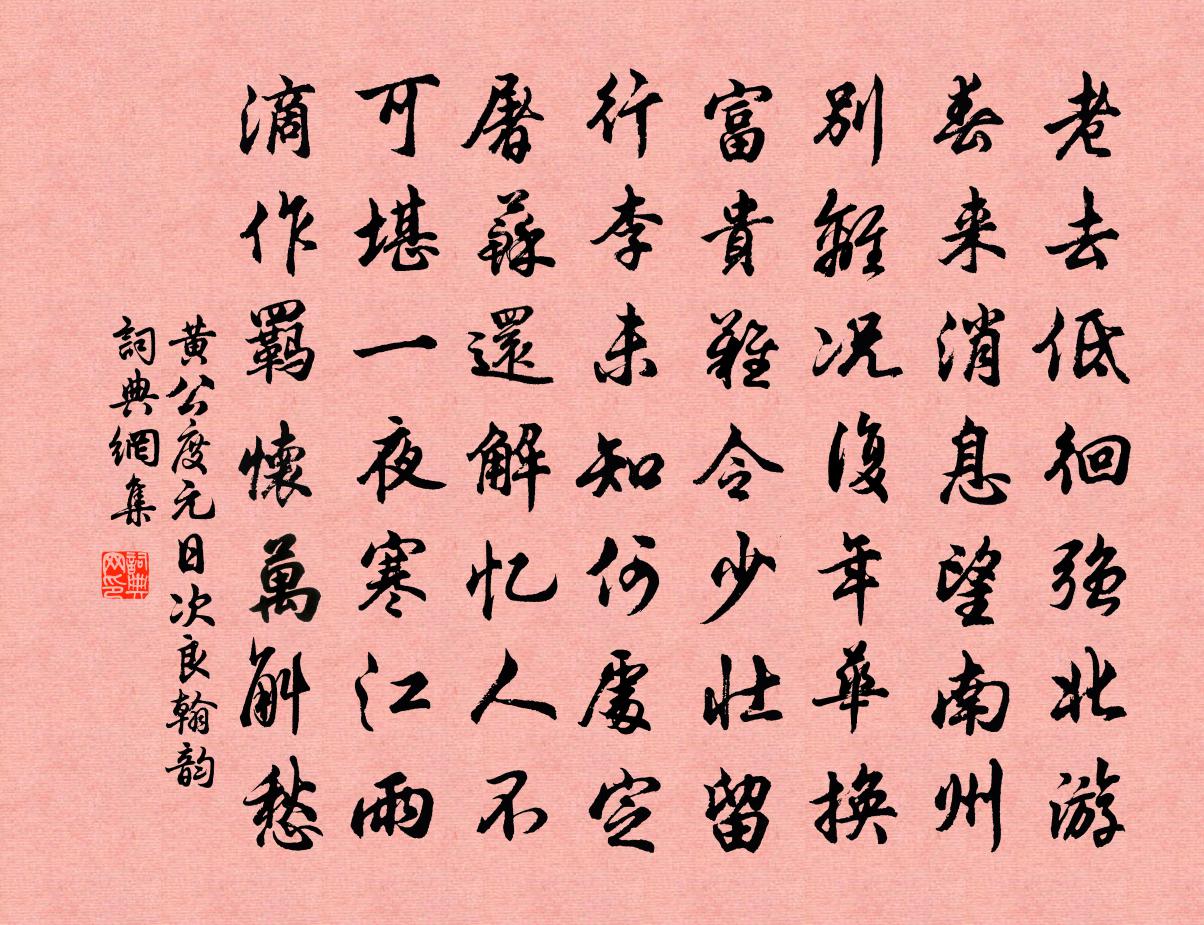 老去低徊強北游
春来消息望南州
別離况復年華換
富貴難令少壯留
行李未知何處定
屠蘇還解忆人不
可堪一夜寒江雨
滴作羈懷萬斛愁
黃公度元日次良翰韵
詞典網集
詞典网印